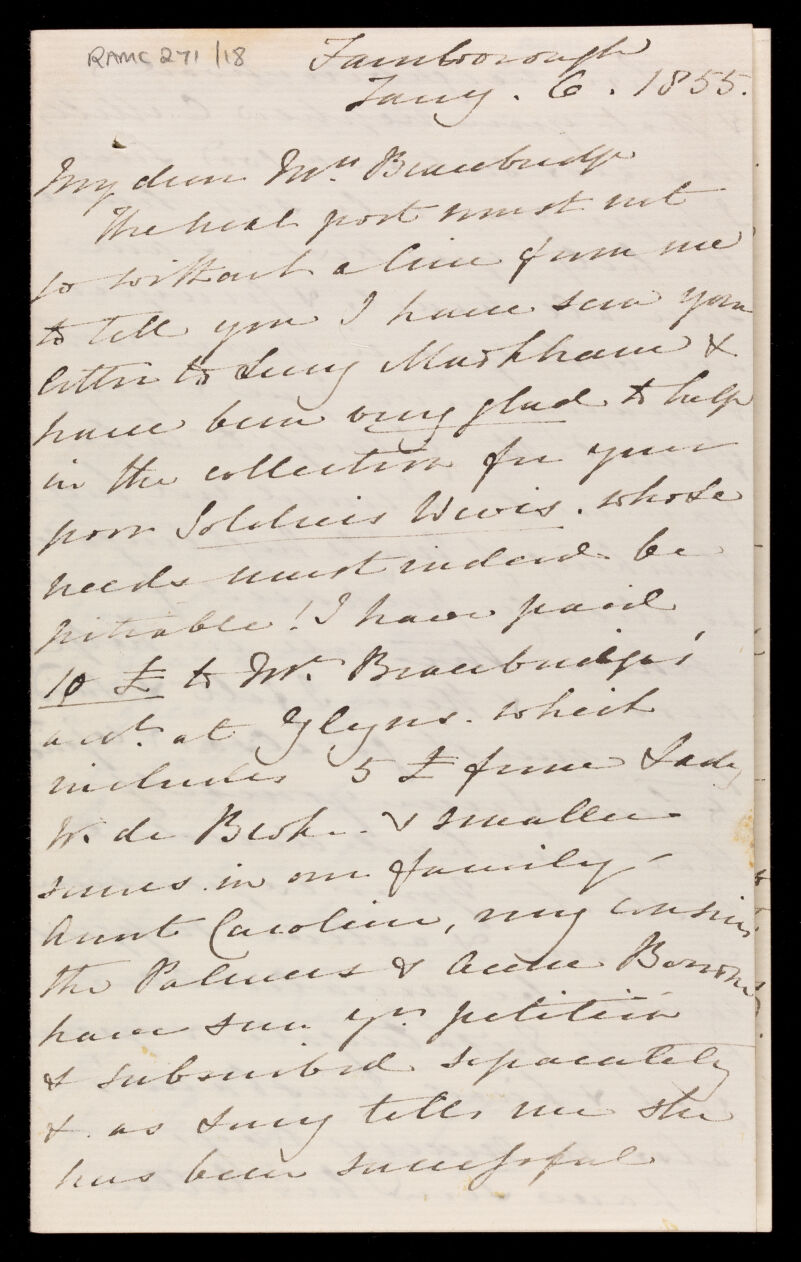 RAMC 271/18
Farnborough
Jany. 6. 1855.
My dear Mrs Bracebridge
The next post must not
go without a line from me
to tell you I have seen your
letter to Lucy Markham &
have been very glad to help
in the collection for your
poor Soldiers Wives. whose
needs must indeed be
pitiable! I have paid
10 £ to Mr. Bracebridge's
acct. at Glyns. which
includes 5 £ from Lady
W. de Broke. & smaller
sums in our family -
Aunt Caroline, my cousins
the Palmers & Anne
have seen yr petition
& subscribed separately
& as Lucy tells me she
has been successful